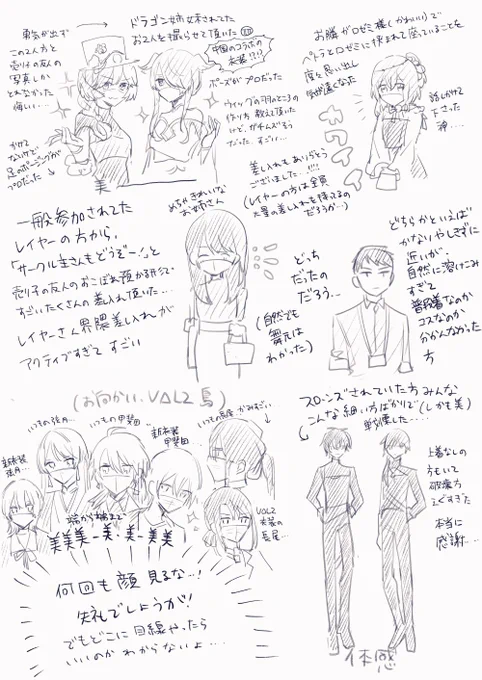 勇気が出ず
この2人方と
売り子の友の
写真しか
とれなかった
悔しい…
ドラゴン姉妹されてた
お2人を撮らせて頂いた
中国のコラボの
衣装!?!?
ポーズがプロだった
ウィッグの羽のところの
作り方 教えて頂いた
けど、ガチムズそう
だった…すごい…
かけて
ないけど
足のポージングが
プロだった
美
お隣がロゼミ様(かわいい)で
ペトラとロゼミに挟まれて座っていることを
度々思い出し
気が遠くなった
話しかけて
下さった
神…
カワイイ
差し入れもありがとう
ございました…!!!
(レイヤーの方は全員
大量の差し入れを持ってるの
だろうか…)
一般参加されてた
レイヤーの方から、
「サークル主さんもどうぞー!」と
売り子の友人のおこぼれお預かる形で
すごいたくさんの差し入れ頂いた…
レイヤーさん界隈差し入れが
アクティブすぎて すごい
めちゃきれいな
お姉さん
どっち
だったの
だろう…
(自然でも
舞元は
わかった)
どちらかといえば
かなりやしきずに
近いが、
自然に溶けこみ
すぎて
普段着なのか
コスなのか
分かんなかった
方
(お向かい、VΔLZ島)
新衣装
弦月…
いつもの弦月…
いつもの甲斐田
新衣装
甲斐田
いつもの長尾 かみすごい
VΔLZ
衣装の
長尾…
端から端まで
美美美-美・美-美美
何回も顔見るな…!
失礼でしょうが!
でもどこに目線やったら
いいのか わからないよ…
スローンズされていた方みんな
こんな細い方ばかりで(しかも美)
戦慄した……
上着なしの
方もいて
破壊力
えぐすぎた
本当に
感謝…
体感